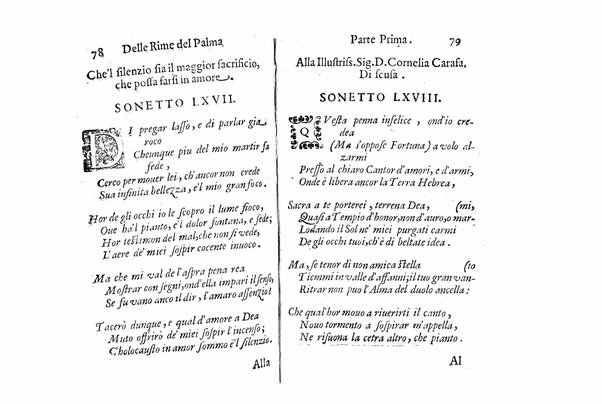 78 Delle Rime del Palma
Che'l silenzio sia il maggior sacrificio,
che possa farsi in amore.
SONETTO LXVII.
DI pregar lasso, e di parlar già
roco
Cheunque piu del mio martir fa
fede,
Cerco per mouer lei, ch'anco non crede
Sua infinita bellezza, e'l mio gran foco.
Hor de gli occhi io le scopro il lume fioco,
Que ha'l pianto, e'l dolor fontana, e sede;
Hor testimon del mal, che non si vede,
L'aere de' miei sospir cocente inuoco.
Ma che mi val de l'aspra pena rea
Mostrar con segni, ond'ella impari il senso,
Se fu vano anco il dir, l'amaro assenzio?
Tacerò dunque, e qual d'amore a Dea
Muto offrirò de' miei sospir l'incenso;
C'holocausto in amor sommo è'l silenzio.
Alla
Parte Prima. 79
Alla Illustriss. Sig. D. Cornelia Carafa,
Di scusa.
SONETTO LXVIII.
QVesta penna infelice, ond'io credea
(Ma s'oppose Fortuna) a volo alzarmi
Presso al chiaro Cantor d'amori, e d'armi,
Onde è libera ancor la Terra Hebrea,
Sacra a te porterei, terrena Dea, (mi,
Quasi a Tempio d'honor, non d'auro, o mar-
Lodando il Sol ne' miei purgati carmi
De gli occhi tuoi, ch'è di beltate idea.
Ma, se tenor di non amica stella (to
Tiemmi in valle d'affanni; il tuo gran van-
Ritrar non puo l'Alma del duolo ancella:
Che qual'hor mouo a riuerirti il canto,
Nouo tormento a sospirar m'appella,
Ne risuona la cetra altro, che pianto.
Al